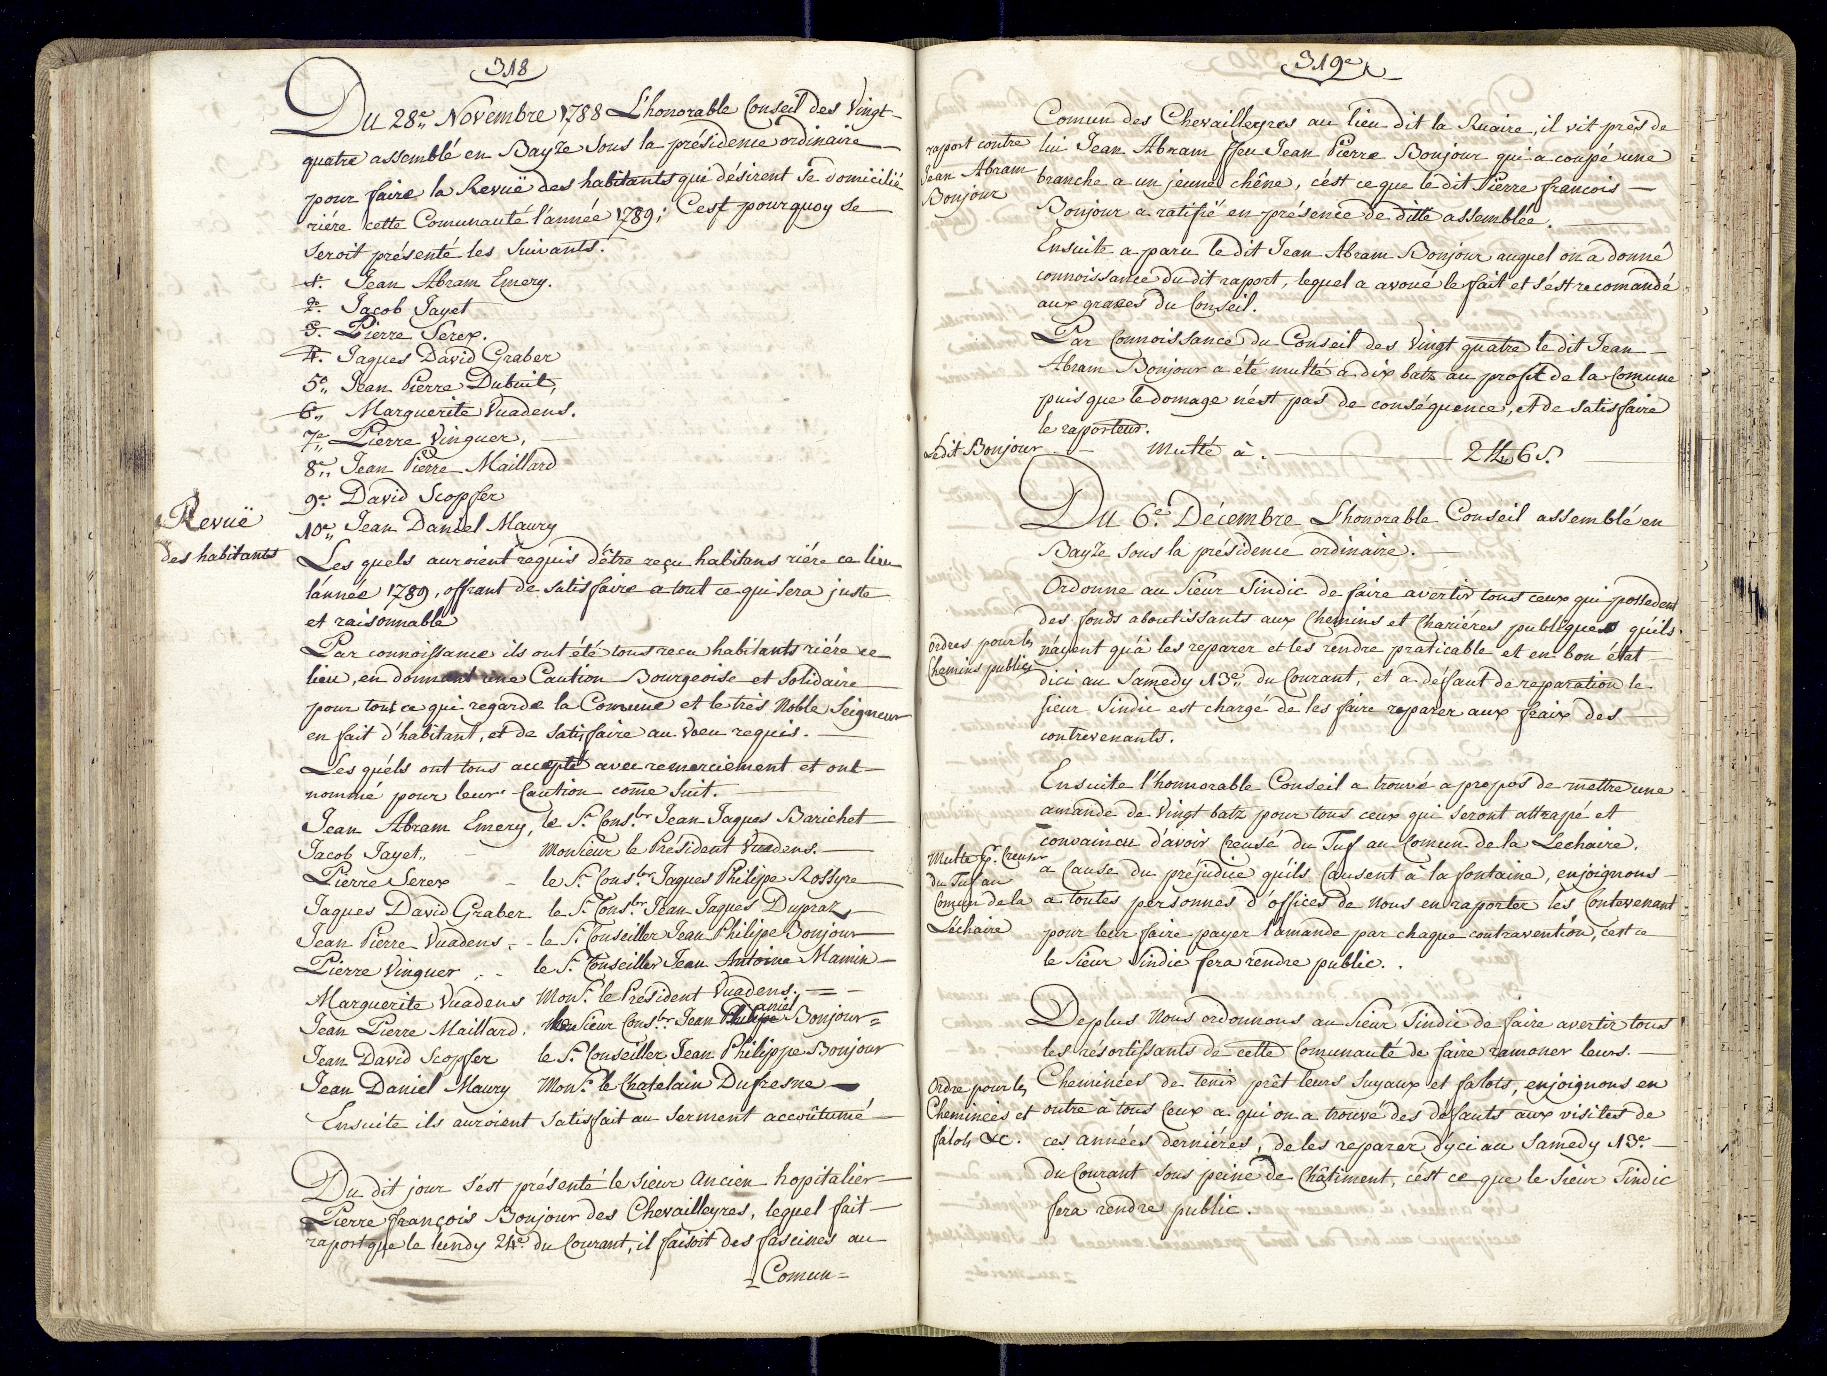 318
Du 28e. Novembre 1788 L'honorable Conseil des Vingt-
quatre assemblé en Bayze sous la présidence ordinaire
pour faire la Revuë des habitants qui désirent se domicilié
riére cette Comunauté l'année 1789; C'est pourquoy se
seroit présenté les suivants.
1e. Jean Abram Emery.
2e. Jacob Jayet
3e. Pierre Serex.
4e. Jaques David Graber
5e. Jean Pierre Dubuit,
6e. Marguerite Vuadens.
7e. Pierre Vinguer,
8e. Jean Pierre Maillard
9e. David Scopfer
10e. Jean Daniel Maury
Revuë
des habitants
Les quels auroient requis d'être reçu habitans riére ce lieu
l'année 1789, offrant de satisfaire a tout ce qui sera juste
et raisonnable
Par connoissance ils ont été tous recu habitants riére ce
lieu, en donnant une Caution Bourgeoise et solidaire
pour tout ce qui regarde la Comune et le très Noble Seigneur
en fait d'habitant, et de satisfaire au voeu requis.
Les quéls ont tous accepté avec remerciement et ont
nommé pour leur Caution come suit.
Jean Abram Emery, le Sr. Consler Jean Jaques Barichet
Jacob Jayet,, Monsieur le Président Vuadens.
Pierre Serex - le Sr. Consler Jaques Philipe Rossyre
Jaques David Graber le Sr. Consler Jean Jaques Dupraz
Jean Pierre Vuadens - le Sr. Conseiller Jean Philipe Bonjour
Pierre Vinguer - le Sr. Conseiller Jean Antoine Mamin
Marguerite Vuadens Monsr. le Président Vuadens.
Jean Pierre Maillard. Monsieur Consler Jean Philipe aniel Bonjour
Jean David Scopfer le Sr. Conseiller Jean Philippe Bonjour
Jean Daniel Maury Monsr. le Chatelain Dufresne
Ensuite ils auroient satisfait au serment accoûtumé
Du dit jour s'est présenté le sieur ancien hopitalier
Pierre françois Bonjour des Chevailleyres, lequel fait
raport que le lundy 24e. du Courant, il faisoit des fascines au
Comun
319e
Comun des Chevailleyres au lieu dit la Ruaire, il vit près de
raport contre
Jean Abram
Bonjour
lui Jean Abram ffeu Jean Pierre Bonjour qui a coupé une
branche a un jeune chêne, c'ést ce que le dit Pierre francois
Bonjour a ratifié en présence de ditte assemblée.
Ensuite a paru le dit Jean Abram Bonjour auquel on a donné
connoissance du dit raport, lequel a avoué le fait et s'ést recomandé
aux graces du Conseil.
Par Connoissance du Conseil des Vingt quatre le dit Jean
Abram Bonjour a été multé a dix batz au profit de la Comune
puis que le domage n'ést pas de conséquence, et de satisfaire
le raporteur.
Ledit Bonjour Multé à. 2 ℔ 6 S.
Du 6e. Décembre L'honorable Conseil assemblé en
Bayze sous la présidence ordinaire.
Ordonne au sieur Sindic de faire avertir tous ceux qui possedent
des fonds aboutissants aux Chemins et Chariéres publiques qu'ils
ordres pour les
Chemins publics
n'ayent qu'à les reparer et les rendre praticable et en bon état
d'ici au Samedy 13e. du Courant, et a défaut de reparation le
sieur Sindic est chargé de les faire reparer aux fraix des
contrevenants.
Ensuite l'honnorable Conseil a trouvé a propos de mettre une
amande de vingt batz pour tous ceux qui seront attrapé et
convaincu d'avoir Creusé du Tuf au Comun de la Lechaire.
Multe pr. Creuser
du Tuf au
Comun de la
Léchaire
a Cause du préjudice qu'ils Causent à la fontaine, enjoignons
a toutes personnes d'offices de nous en raporter les Contevenant
pour leur faire payer l'amande par chaque contravention, c'est ce
le sieur Sindic fera rendre public.
Deplus nous ordonnons au sieur Sindic de faire avertir tous
les résortissants de cette Comunauté de faire ramoner leurs.
Ordre pour les
Cheminées et
falots &c.
Cheminées de tenir prêt leurs suyaux et falots, enjoignons en
outre à tous Ceux a qui on a trouvé des défauts aux visites de
ces années derniéres, de les reparer d'yci au Samedy 13e.
du Courant sous peine de Châtiment, c'ést ce que le sieur Sindic
fera rendre public.